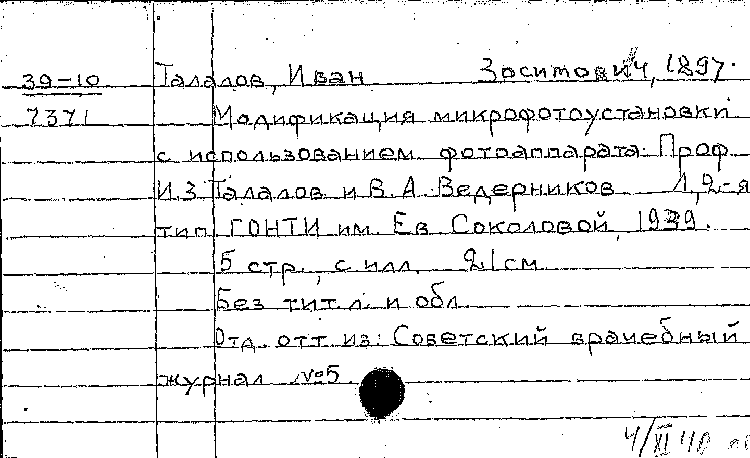 39-10 Талалов, Иван Зоситович, 1897.
7371 Модификация микрофотоустановки
с использованием фотоаппарата. Проф
И.З. Талалов и В.А. Ведерников. Л, 2-я
тип ГОНТИ им. Ев Соколовой, 1939.
5 стр., с илл, 21 см
Без тит.л. и обл
Отд. отт из: Советский врачебный
журнал №5
4/XI 40